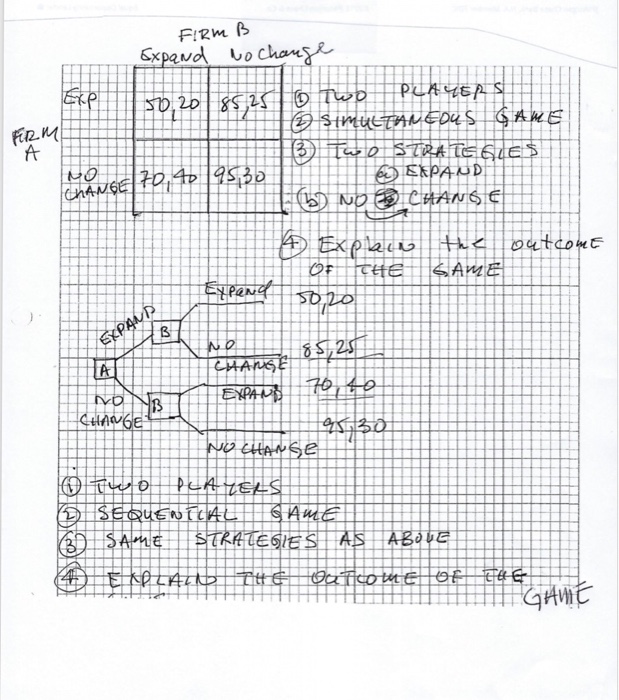 FIRM B
Expand No Change
EXP 50,20 85,25
FIRM A
NO CHANGE 70,40 95,30
① TWO PLAYERS
② SIMULTANEOUS GAME
③ TWO STRATEGIES
ⓐ EXPAND
ⓑ NO CHANGE
④ Explain the outcome
OF THE GAME
Expand 50,20
EXPAND B
NO CHANGE 85,25
A
EXPAND 70,40
NO CHANGE B
NO CHANGE 95,30
① TWO PLAYERS
② SEQUENTIAL GAME
③ SAME STRATEGIES AS ABOVE
④ EXPLAIN THE OUTCOME OF THE
GAME